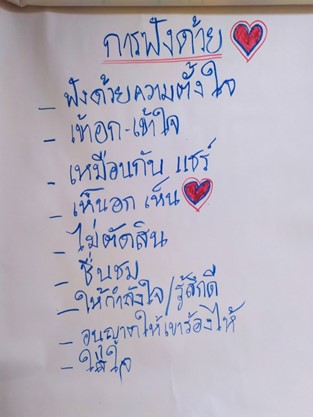 การฟังด้วย ❤
- ฟังด้วยความตั้งใจ
- เข้าอก-เข้าใจ
- เหมือนกัน แชร์
- เห็นอก เห็น ❤
- ไม่ตัดสิน
- ชื่นชม
- ให้กำลังใจ/รู้สึกดี
- อนุญาตให้เขาร้องไห้
- ใส่ใจ